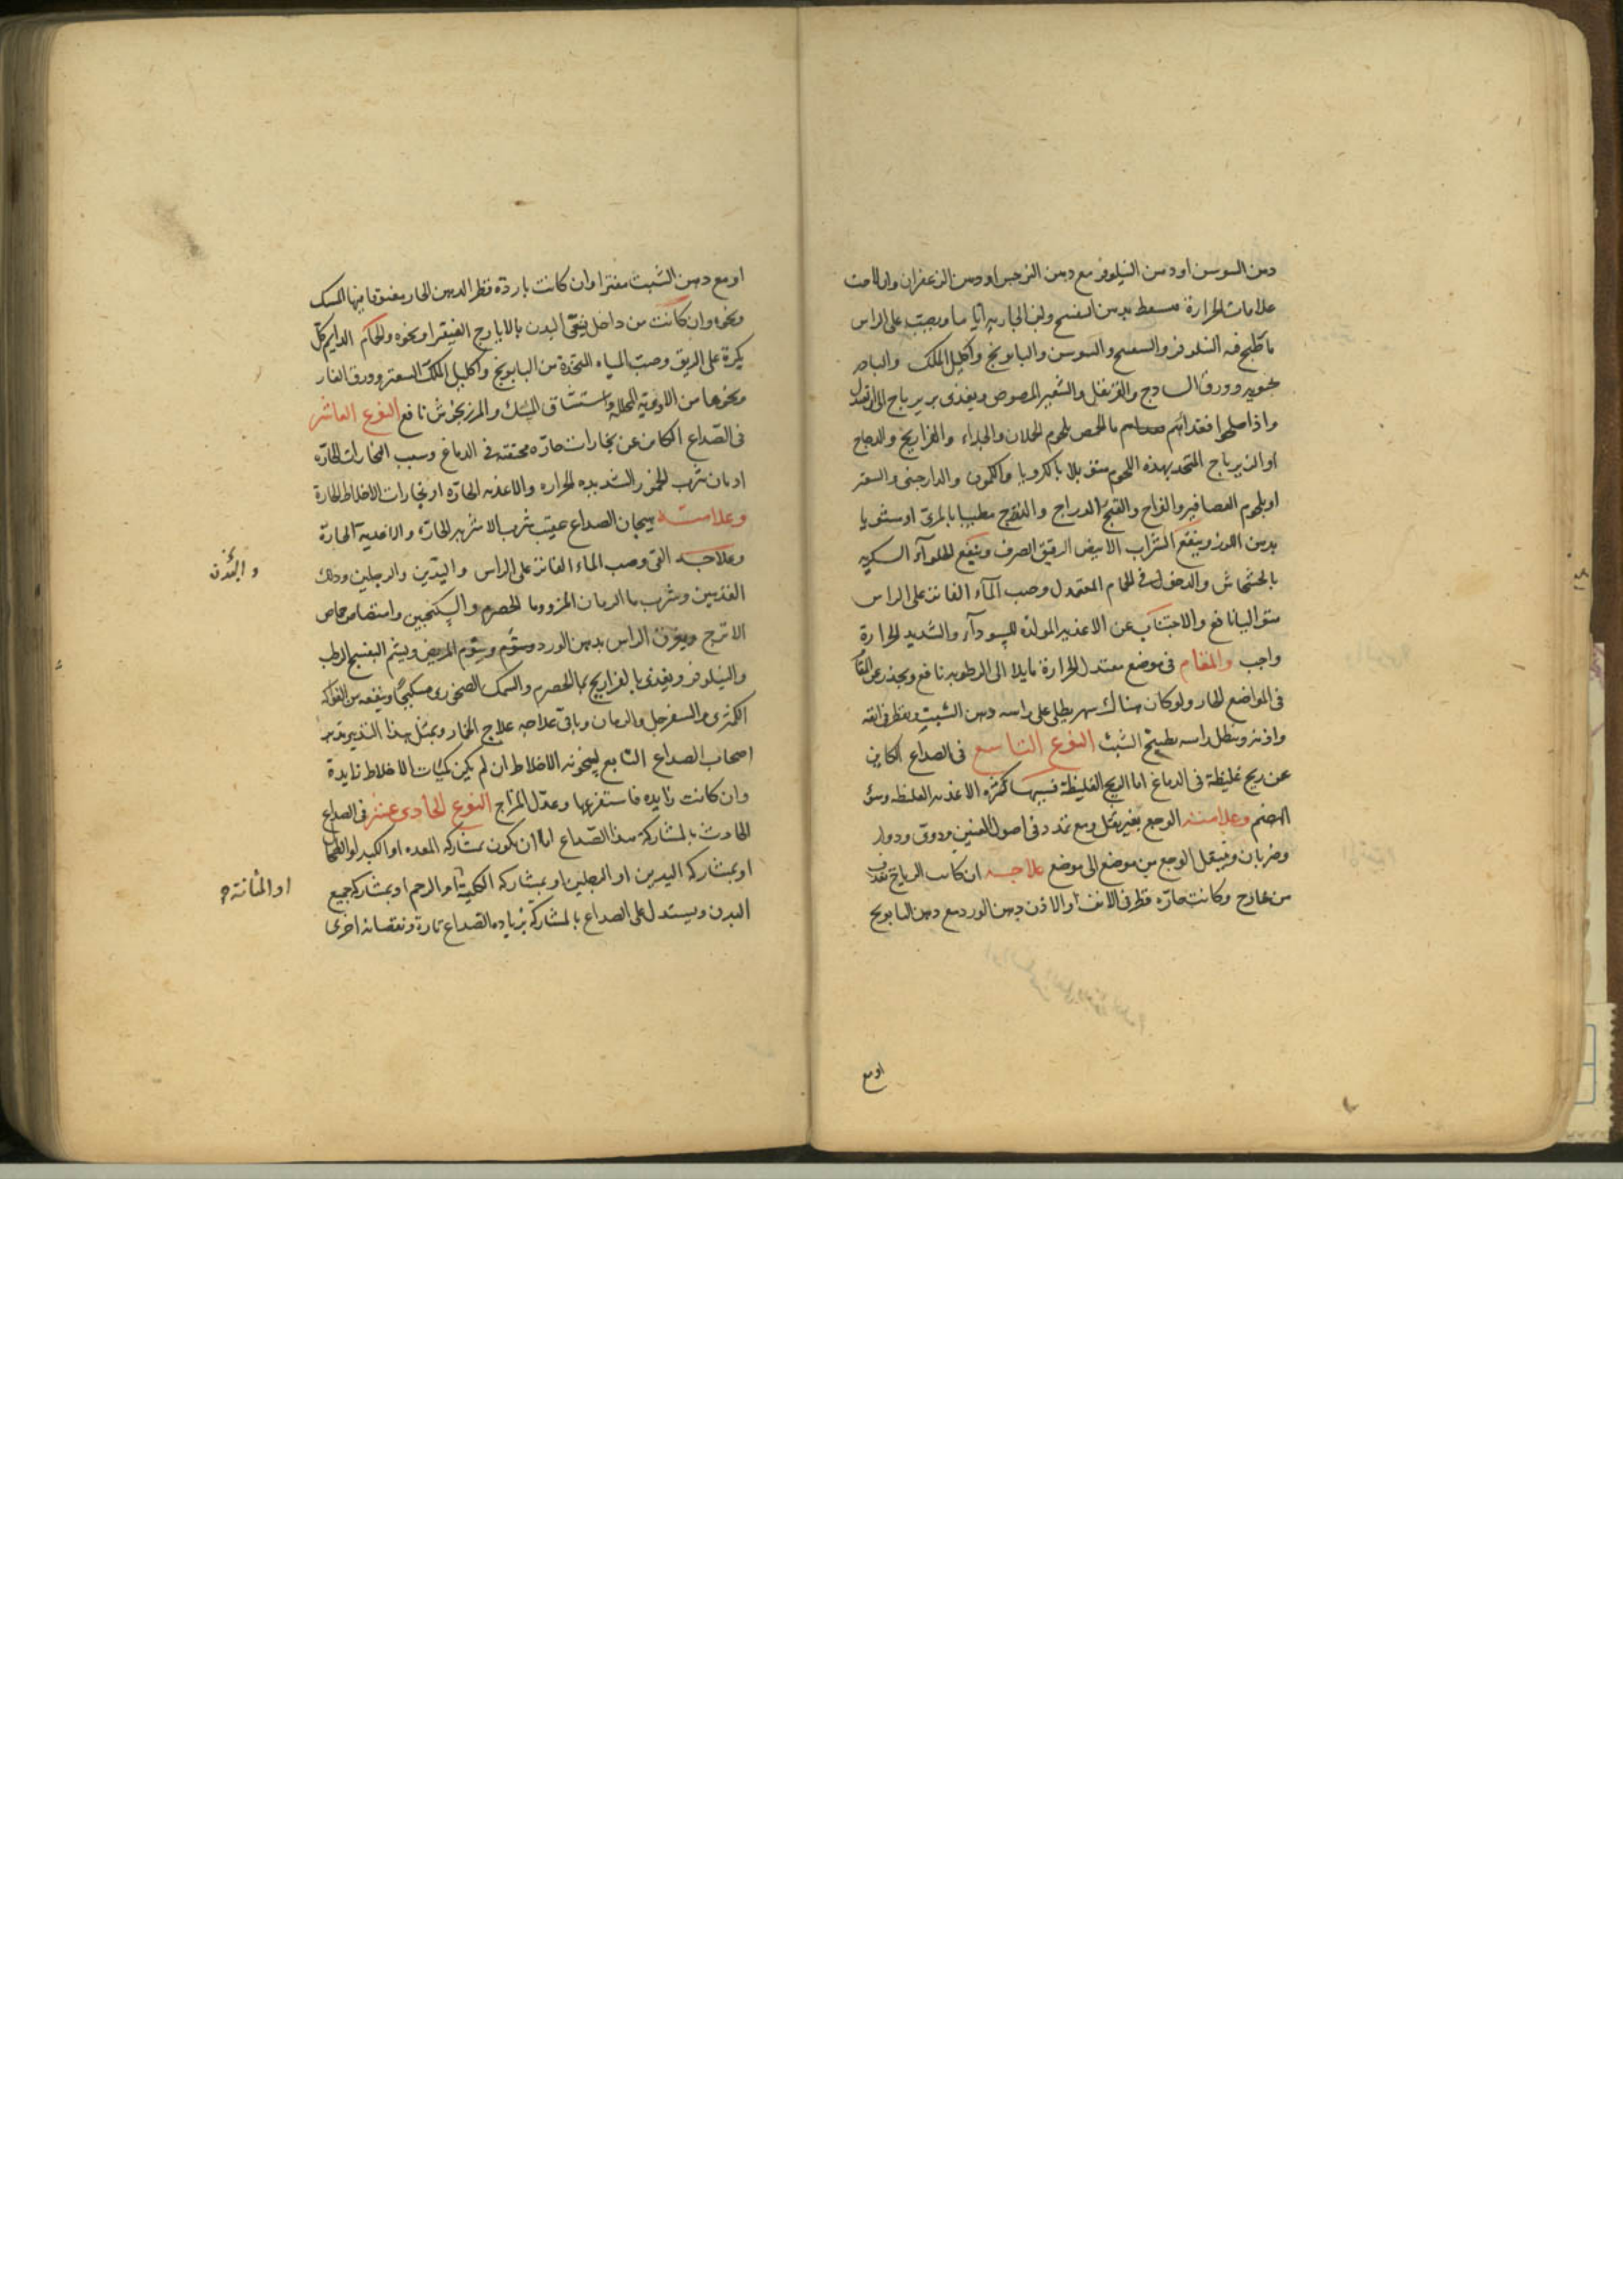 دهن السوسن او دهن النيلوفر مع دهن النرجس او دهن الزعفران وان لاحت
علامات الحرارة فسعط بدهن البنفسج ولبن الجارية اياما ويصب على الراس
ما طبخ فيه النيلوفر والبنفسج والسوسن والبابونج واكليل الملك
وورق السادج والقرنفل والشعير المرضوض ويغذى بزيرباج
واذا اصلحوا فغذائهم ماء الحمص بلحوم الحملان والجداء والفراريج والدجاج
او الزيرباج المتخذ بهذه اللحوم متوبلا بالكرويا والكمون والدارجينى والسعتر
او بلحوم العصافير والفراخ والقبج والدراج مطيبا بالمرى او مشويا
بدهن اللوز وينفع الشراب الابيض الرقيق الصرف وينفع الحلوآء السكرية
بالخشخاش والدخول فى الحمام المعتدل وصب المآء الفاتر على الراس
متواليا نافع والاجتناب عن الاغذية المولدة للسودآء والشديد الحرارة
واجب والمقام فى موضع معتدل الحرارة مايلا الى الرطوبة نافع ويحذر عن
فى المواضع الحار ولو كان هناك سهر يطلى على راسه دهن الشبت ويقطر فى انفه
واذنه وينطل راسه بطبيخ الشبث النوع التاسع فى الصداع الكاين
عن ريح غليظة فى الدماغ اما الريح الغليظة فسببها كثرة الاغذية الغليظه وسؤ
الهضم وعلامته الوجع بغير ثقل ومع تمدد فى اصول العينين ودوى ودوار
وضربان وينتقل الوجع من موضع الى موضع علاجه ان كانت الرياح
من خارج وكانت حارة قطر فى الانف او الاذن دهن الورد مع دهن البابونج
او مع
او مع دهن الشبت مفترا وان كانت باردة قطر الدهن الحار مفتوقا فيها المسك
ونحوه وان كانت من داخل ينقى البدن بالايارج الفيقرا ونحوه والحمام الدايم كل
بكرة على الريق وصب المياه المتخذة من البابونج واكليل الملك السعتر وورق الغار
ونحوها من الادوية المحللة واستنشاق المسك والمرزنجوش نافع النوع العاشر
فى الصداع الكائن عن بخارات حارة محتقنة فى الدماغ وسبب البخارات الحارة
ادمان شرب الخمور الشديده الحرارة والاغذية الحارة او بخارات الاخلاط الحارة
وعلامته هيجان الصداع عقيب شرب الاشربة الحارة والاغدية الحارة
وعلاجه القى وصب الماء الفاتر على الراس واليدين والرجلين ودلك
القدمين وشرب ماء الرمان المز وماء الحصرم والسكنجبين وامتصاص حماض
الاترج ويغرق الراس بدهن الورد وينوم المريض ويشم البنفسج الرطب
والنيلوفر ويغذى بالفراريج بماء الحصرم والسمك الصخرى مسكبجا وينفعه من الفواكه
الكمثرى والسفرجل والرمان وباقى علاجه علاج الخمار وبمثل هذا التدبير تدبر
اصحاب الصداع التابع لسخونة الاخلاط ان لم يكن كميات الاخلاط زايدة
وان كانت زايدة فاستفرغها وعدل المزاج النوع الحادى عشر فى الصداع
الحادث بالمشاركة هذا الصداع اما ان يكون بمشاركة المعدة او الكبد او الطحال
او بمشاركة اليدين او الرجلين او بمشاركة الكلية او الرحم او بمشاركة جميع
البدن ويستدل على الصداع بالمشاركة بزيادة الصداع تارة ونقصانه اخرى
او المثانة